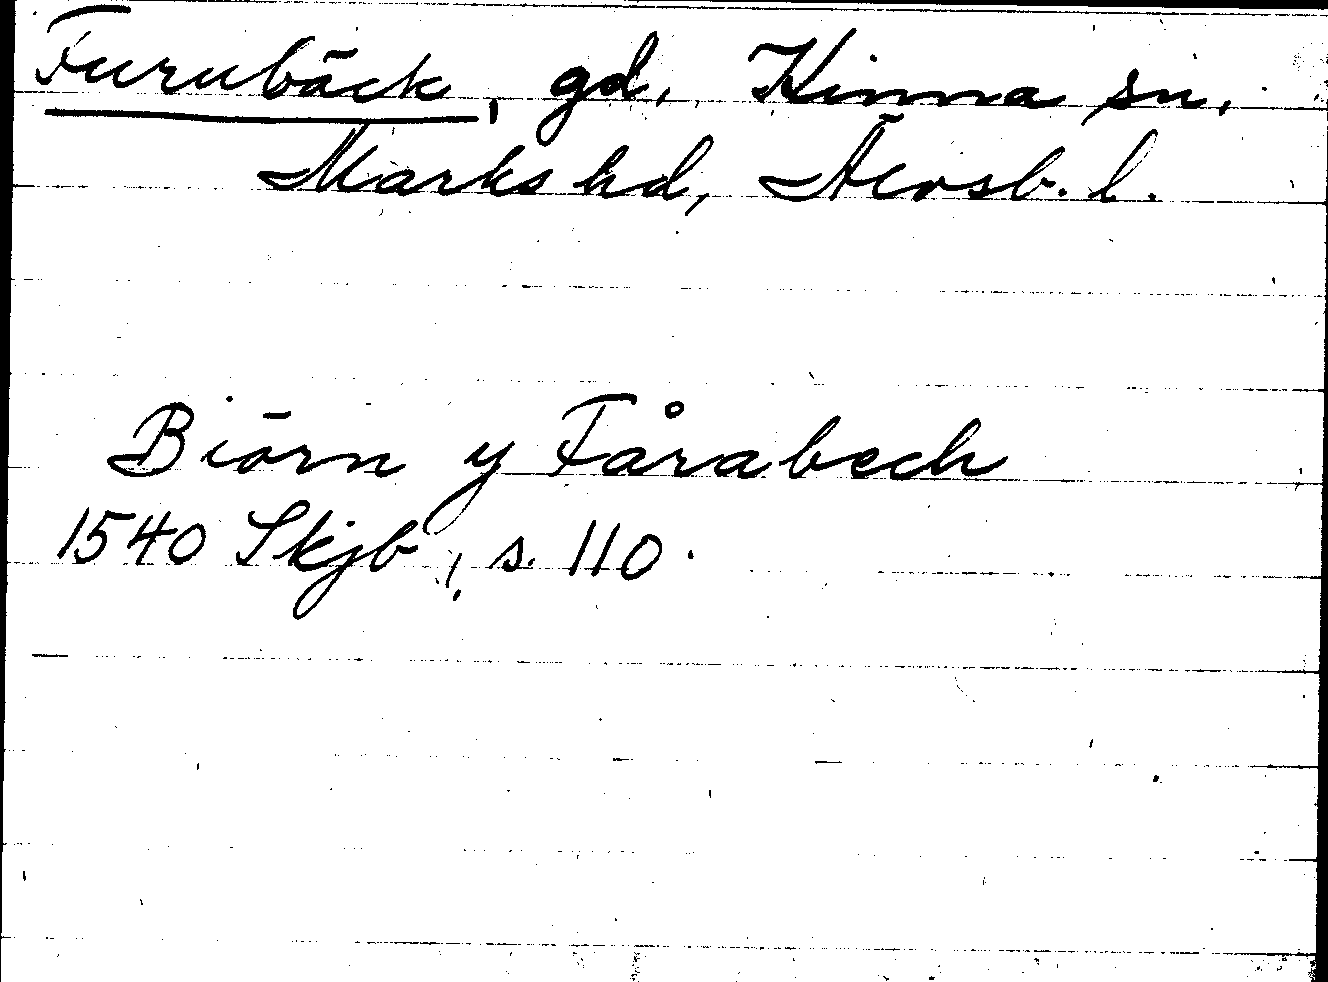 Furubäck, gd, Kinna sn,
Marks hd, Älvsb. l.
Biörn y Fårabech
1540 Skjb, s. 110.